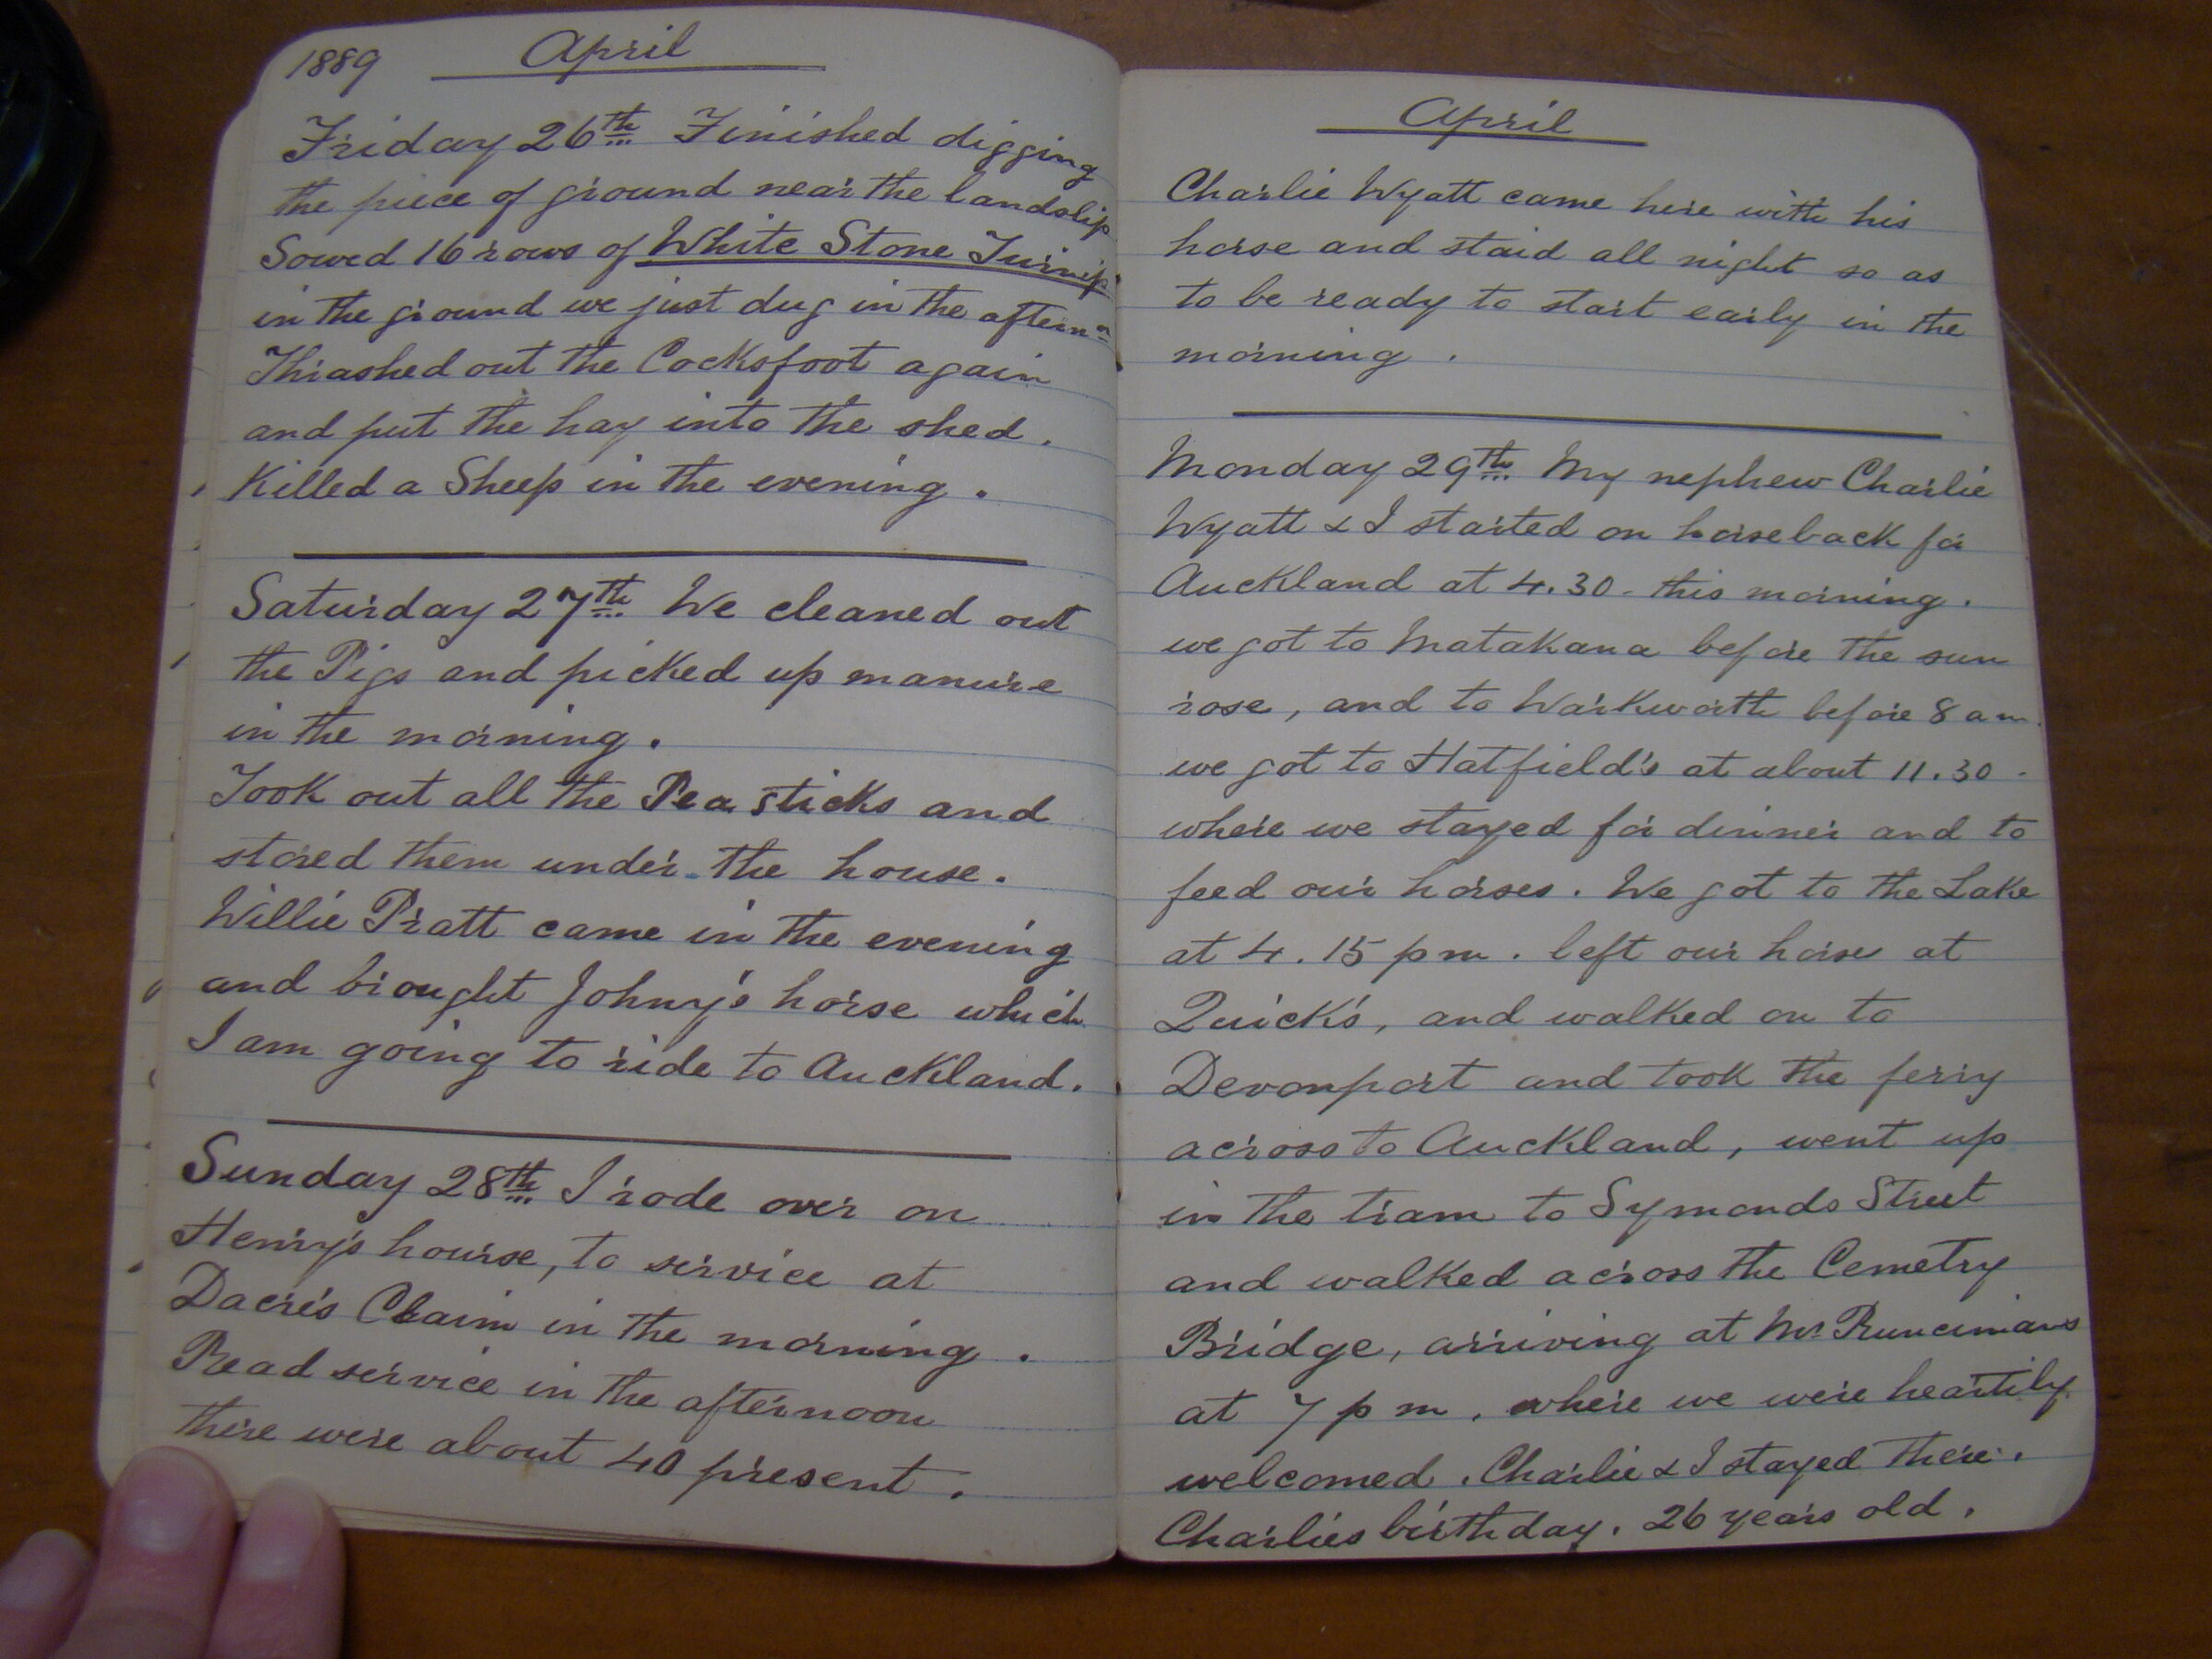 1889 April
Friday 26th Finished digging
the piece of ground near the landslip
Sowed 16 rows of White Stone Turnip
in the ground we just dug in the aftern n
Thrashed out the Cocksfoot again
and put the hay into the shed.
Killed a Sheep in the evening.
Saturday 27th We cleaned out
the Pigs and picked up manure
in the morning.
Took out all the Pea sticks and
stored them under the house.
Willie Pratt came in the evening
and brought Johny's horse which
I am going to ride to Auckland.
Sunday 28th I rode over on
Henry's hourse, to service at
Dacre's Claim in the morning.
Read service in the afternoon
there were about 40 present.
April
Charlie Wyatt came here with his
horse and staid all night so as
to be ready to start early in the
morning.
Monday 29th My nephew Charlie
Wyatt & I started on horseback for
Auckland at 4.30 - this morning.
we got to Matakana before the sun
rose, and to Warkworth before 8 am.
we got to Hatfield's at about 11.30 -
where we stayed for dinner and to
feed our horses. We got to the Lake
at 4.15 pm. left our horses at
Quick's, and walked on to
Devonport and took the ferry
across to Auckland, went up
in the tram to Symonds Street
and walked across the Cemetry
Bridge, arriving at Mr Runcimans
at 7 pm, where we were heartily
welcomed. Charlie & I stayed there.
Charlies birthday. 26 years old.